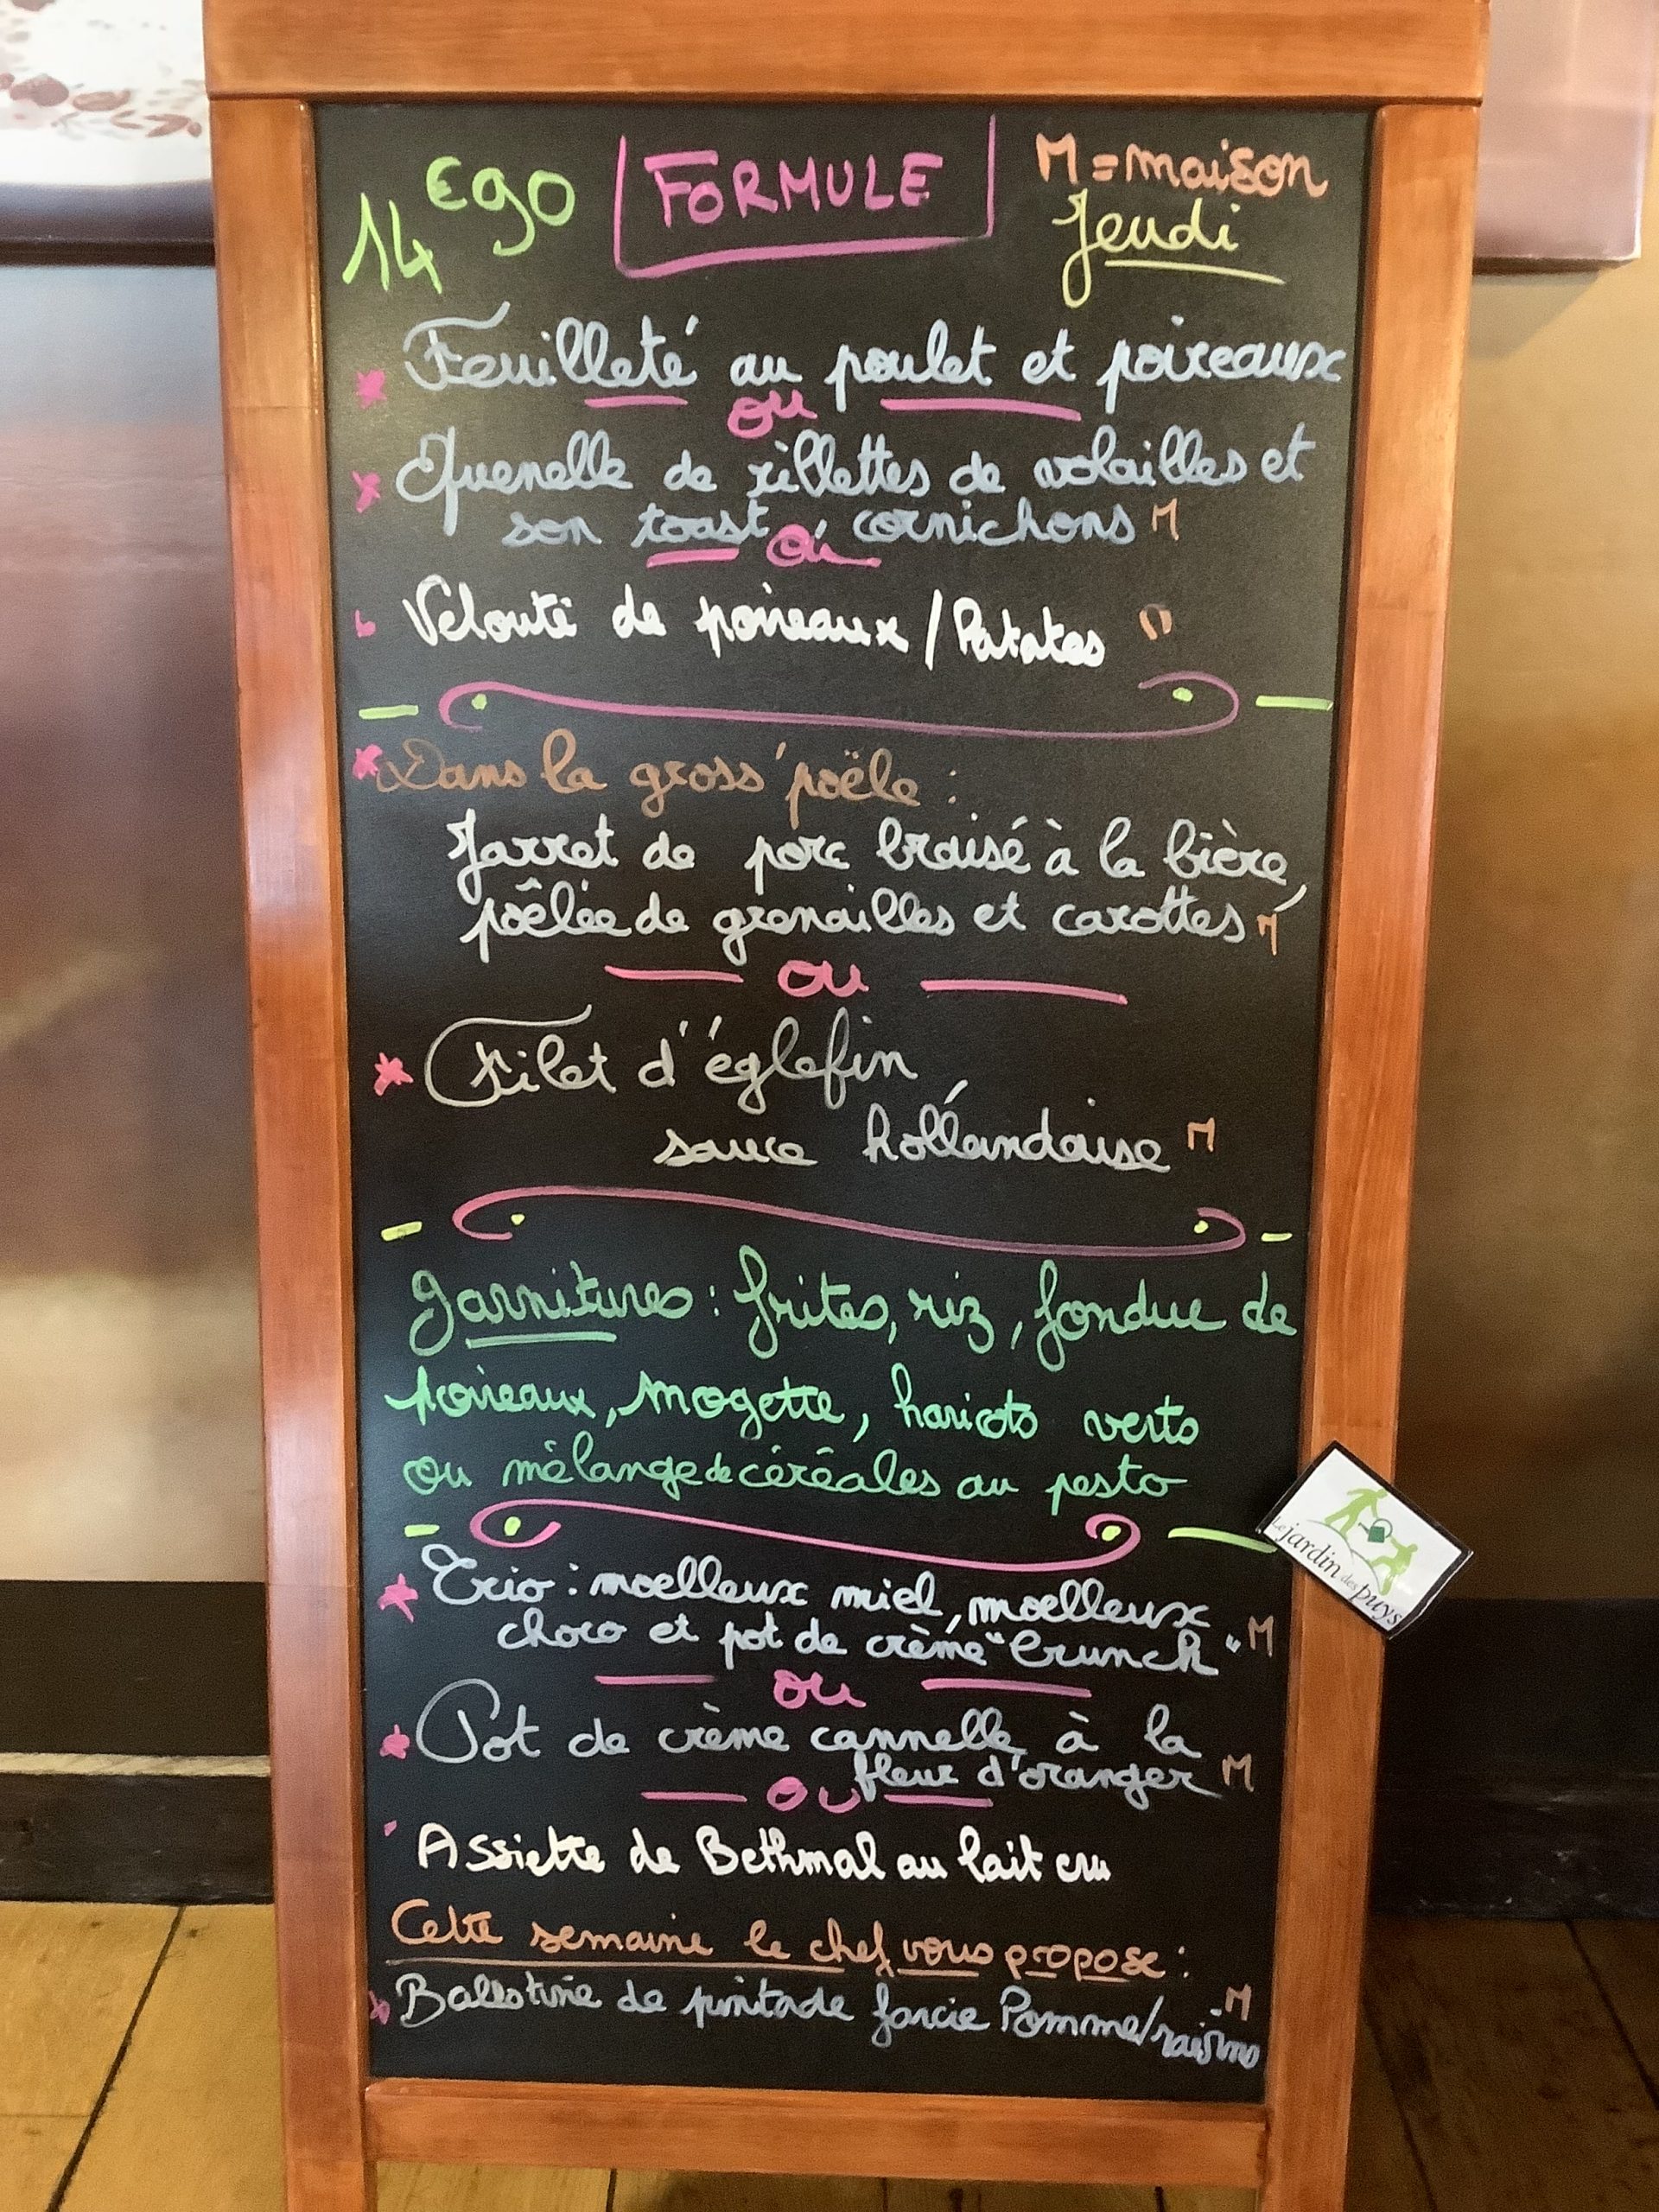 14€90 FORMULE M=maison
Jeudi
Feuilleté au poulet et poireaux
ou
Quenelle de rillettes de volailles et
son toast, cornichons M
ou
Velouté de poireaux / Patates
Dans la gross' poële :
Jarret de porc braisé à la bière,
pôelée de grenailles et carottes M
ou
Filet d'églefin
sauce hollandaise M
Garnitures : frites, riz, fondue de
poireaux, mogette, haricots verts
ou mélange de céréales au pesto
Trio : moelleux miel, moelleux
choco et pot de crème "Crunch" M
ou
Pot de crème cannelle, à la
fleur d'oranger M
Ou
Assiette de Bethmal au lait cru
Cette semaine le chef vous propose :
Ballotine de pintade farcie Pomme/raisins M
Le jardin des puys